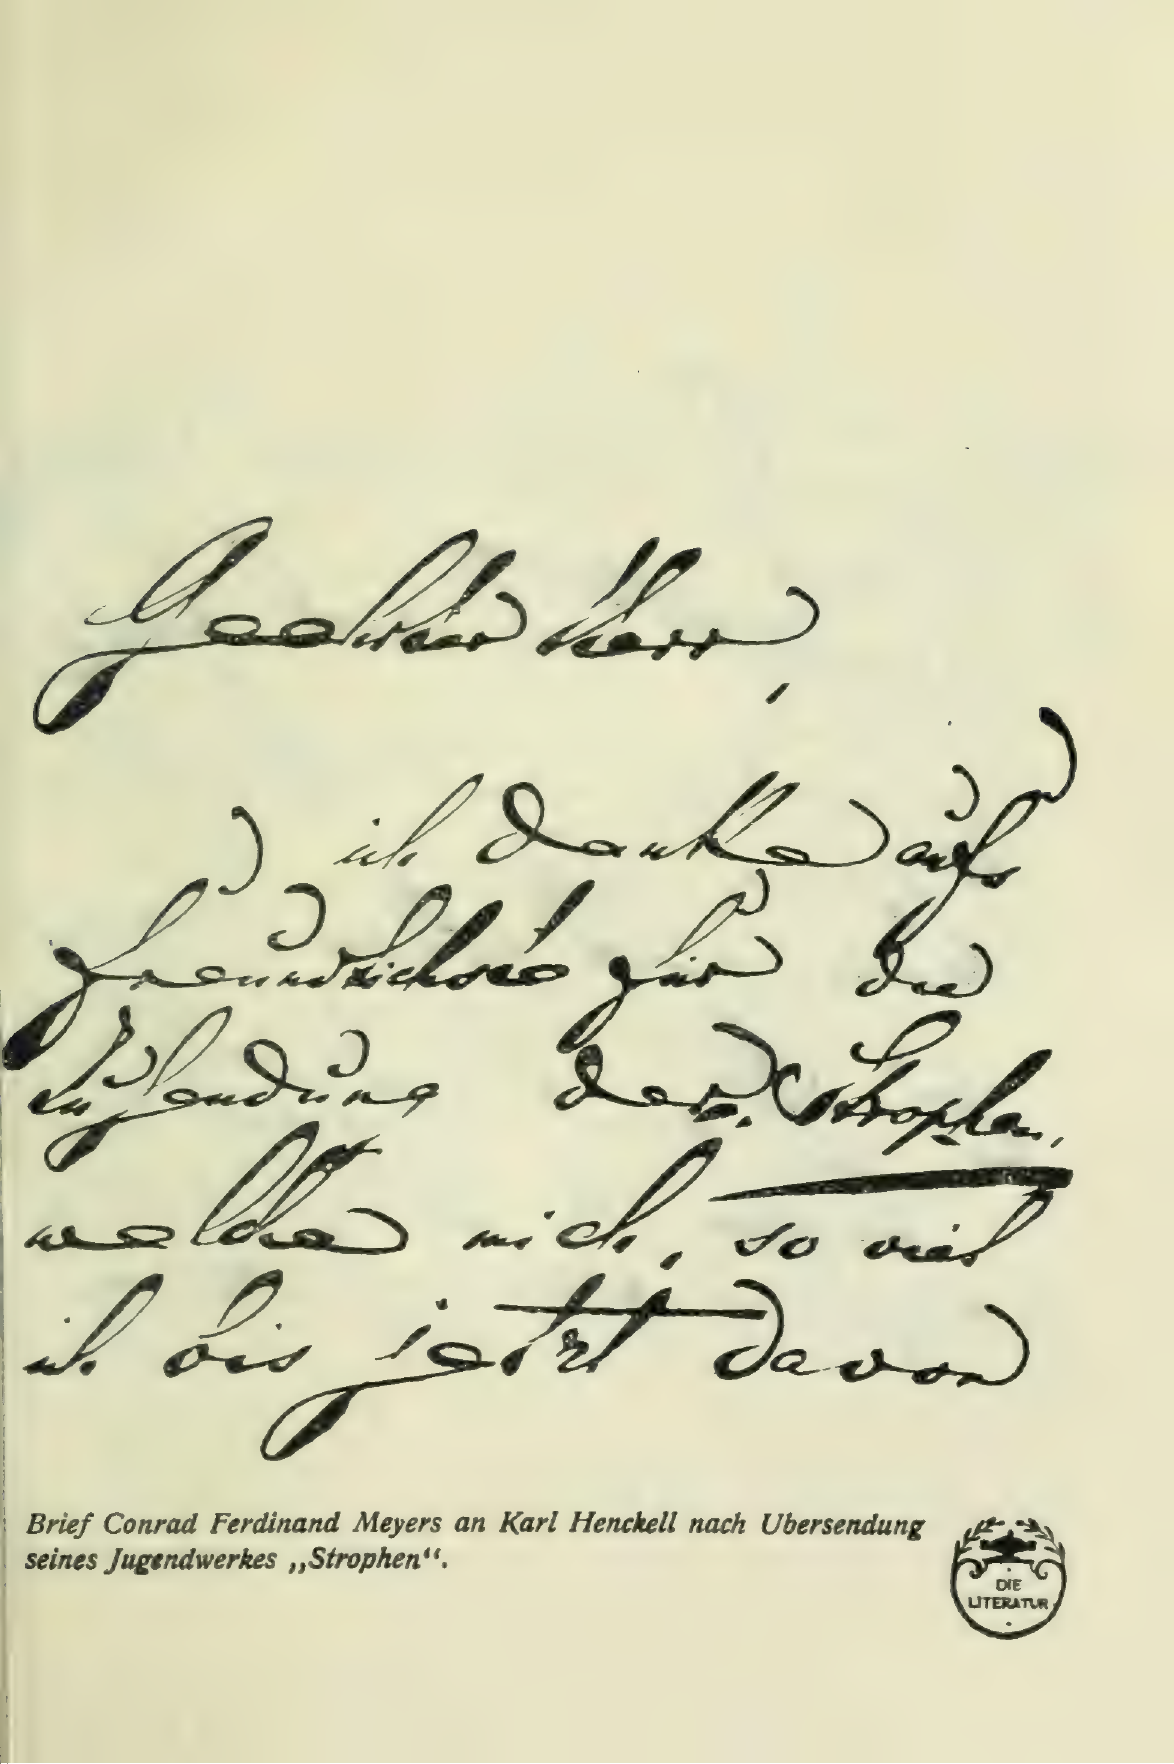 Geehrter Herr,
ich danke aufs
freundlichste für die
Zusendung der Strophen,
welche mich, so viel
ich bis jetzt davon
Brief Conrad Ferdinand Meyers an Karl Henckell nach Ubersendung
seines Jugendwerkes „Strophen“.
DIE
LITERATUR